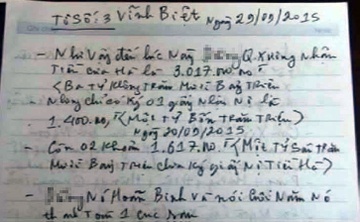 Tờ Số: 3 Vĩnh Biệt Ngày 29/09/2015
- Như Vậy đến lúc Này Q. Xưởng Nhận
Tiền của Hà là 3.017.00.00 đ
< Ba Tỷ Không Trăm Mười Bảy Triệu
- Nhưng chỉ có Ký 01 giấy Nhận Nợ là
1.400.00, < Một Tỷ Bốn Trăm Triệu >
Ngày 20/09/2015
- Còn 02 Khoản 1.617.00. < Một Tỷ Sáu Trăm
Mười Bảy Triệu chưa Ký giấy Nợ Tiền Hà >
- Nó Hoàn Bình và nói cuối Năm Nó
1 cục